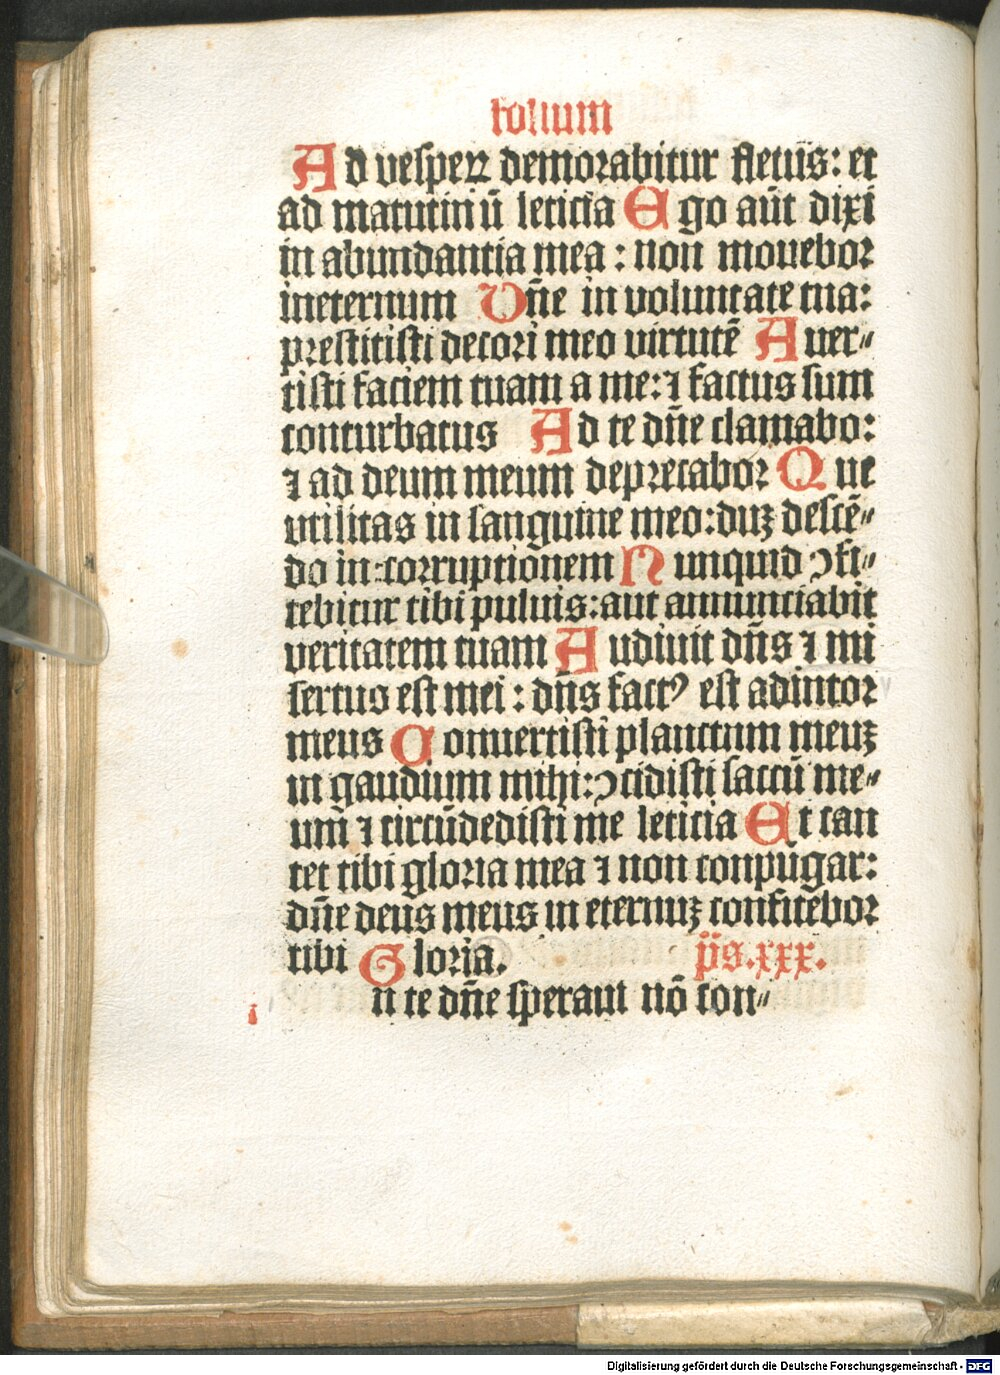 folium
Ad vesperꝝ demorabitur fletus: et
ad matutinū leticia Ego aūt dixi
in abundantia mea: non mouebor
ineternum Dn̄e in voluntate tua:
prestitisti decori meo virtutē Auer⸗
tisti faciem tuam a me: ⁊ factus sum
conturbatus Ad te dn̄e clamabo:
⁊ ad deum meum deprecabor Que
vtilitas in sanguine meo: duꝫ descē⸗
do in: corruptionem Nunquid ꝯfi⸗
tebitur tibi puluis: aut annunciabit
veritatem tuam Audiuit dn̄s ⁊ mi
sertus est mei: dn̄s factꝰ est adiutor
meus Conuertisti planctum meuꝫ
in gaudium mihi: ꝯcidisti saccū me⸗
um ⁊ circūdedisti me leticia Et can
tet tibi gloria mea ⁊ non conpugar:
dn̄e deus meus in eternuꝫ confitebor
tibi Gloria. p̄s. xxx.
i n te dn̄e speraui nō con⸗
Digitalisierung gefördert durch die Deutsche Forschungsgemeinschaft - DFG